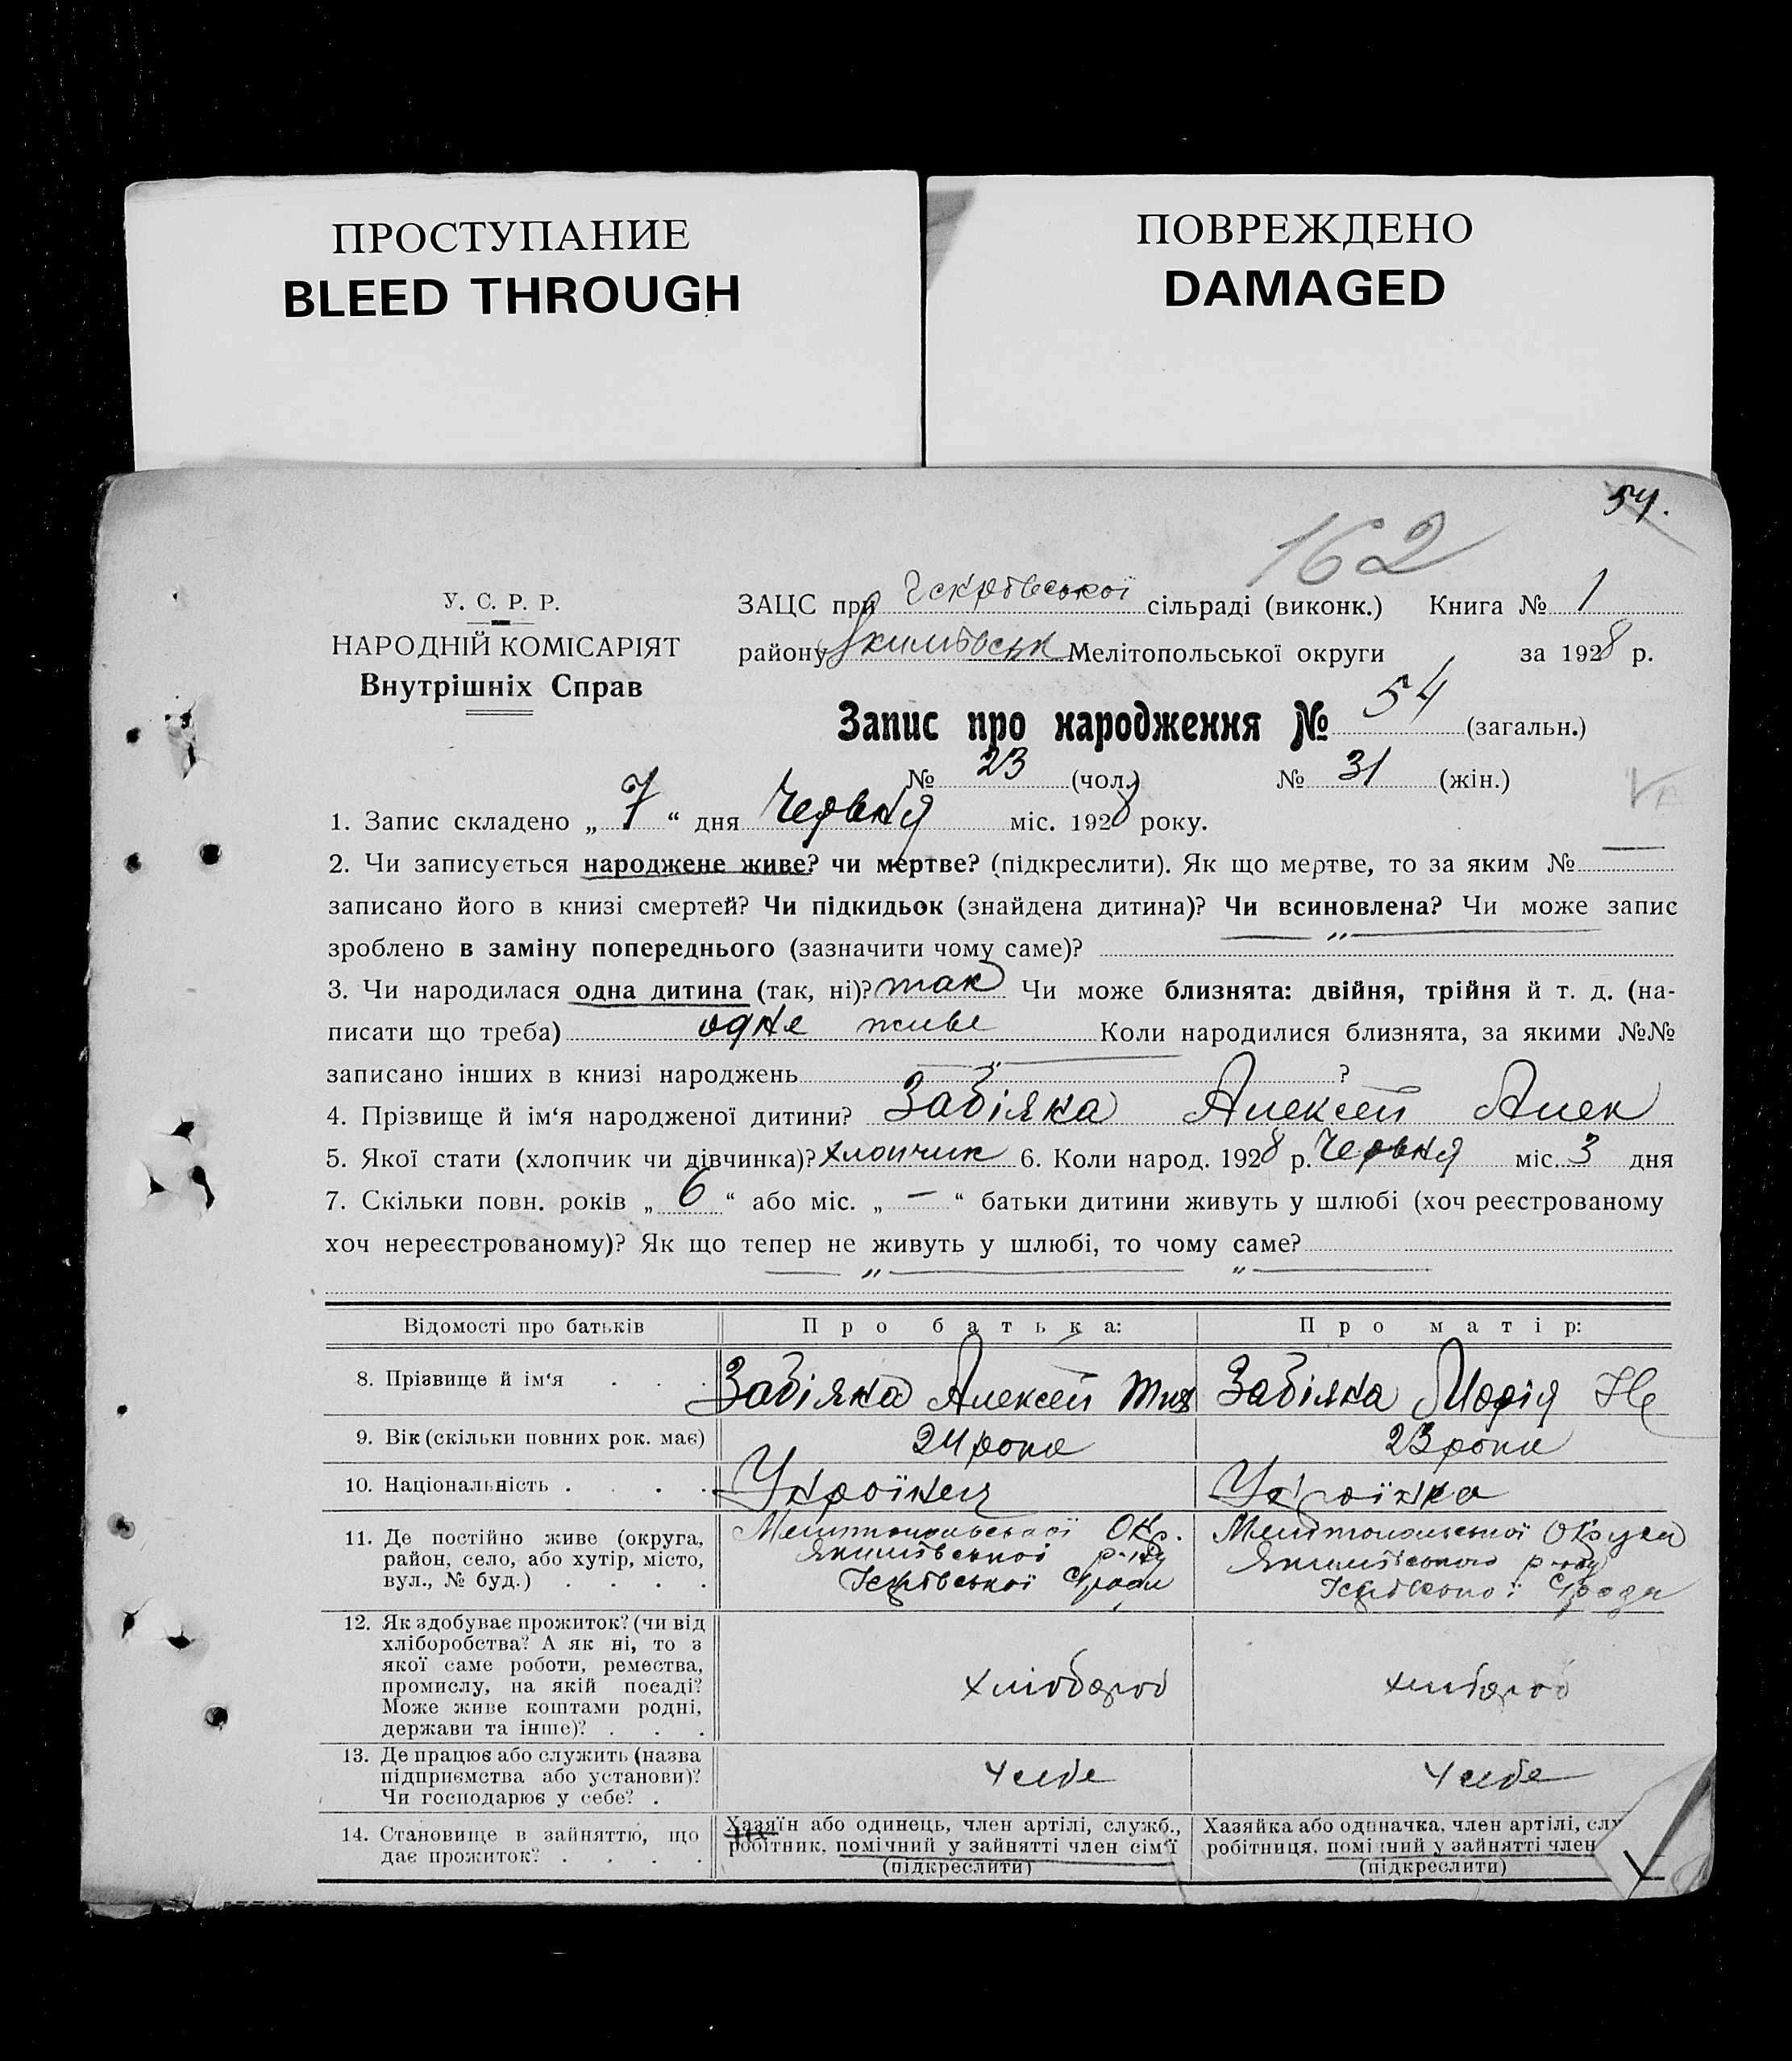 ПРОСТУПАНИЕ
BLEED THROUGH
ПОВРЕЖДЕНО
DAMAGED
54.
162
У. С. Р. Р.
НАРОДНІЙ КОМІСАРІЯТ
Внутрішніх Справ
ЗАЦС при сільраді (виконк.) Книга № 1
району Якимівськ Мелітопольської округи за 1928 р.
Запис про народження № 54 (загальн.)
№ 23 (чол.) № 31 (жін.)
1. Запис складено „ 7 “ дня Червня міс. 1928 року.
2. Чи записується народжене живе? чи мертве? (підкреслити). Як що мертве, то за яким № —
записано його в книзі смертей? Чи підкидьок (знайдена дитина)? Чи всиновлена? Чи може запис
зроблено в заміну попереднього (зазначити чому саме)?
3. Чи народилася одна дитина (так, ні)? так Чи може близнята: двійня, трійня й т. д. (на-
писати що треба) одне живе Коли народилися близнята, за якими №№
записано інших в книзі народжень ?
4. Прізвище й ім‘я народженої дитини? Забіяка Алексей Алек
5. Якої стати (хлопчик чи дівчинка)? хлопчик 6. Коли народ. 1928 р. Червня міс. 3 дня
7. Скільки повн. років „ 6 “ або міс. „ — “ батьки дитини живуть у шлюбі (хоч реєстрованому
хоч нереєстрованому)? Як що тепер не живуть у шлюбі, то чому саме?
Відомості про батьків
Про батька:
Про матір:
8. Прізвище й ім‘я . . .
Забіяка Алексей
Забіяка Марія
9. Вік (скільки повних рок. має)
24 рока
23 роки
10. Національність . . . .
Українец
Українка
11. Де постійно живе (округа,
район, село, або хутір, місто,
вул., № буд.) . . . .
Мелітопольської Окр.
Якимівської р-ну
С/ради
Мелітопольської Округи
Якимівського р-ну
С/ради
12. Як здобуває прожиток? (чи від
хліборобства? А як ні, то з
якої саме роботи, ремества,
промислу, на якій посаді?
Може живе коштами родні,
держави та інше)? . . .
хлібороб
хлібороб
13. Де працює або служить (назва
підприємства або установи)?
Чи господарює у себе? .
У себе
У себе
14. Становище в зайняттю, що
дає прожиток? . . . .
Хазяїн або одинець, член артілі, служб.,
робітник, помічний у зайнятті член сім‘ї
(підкреслити)
Хазяйка або одиначка, член артілі, слу
робітниця, помічний у зайнятті член
(підкреслити)